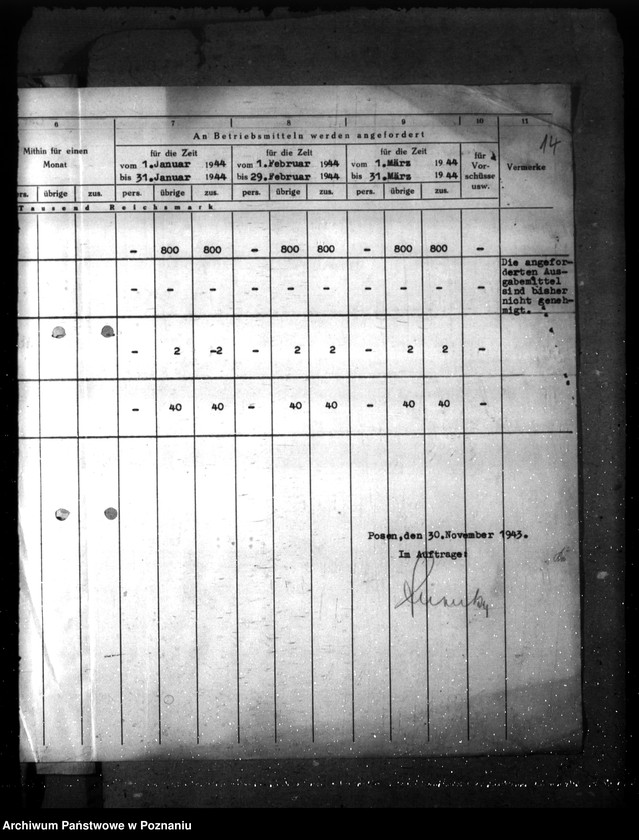 14
6 7 8 9 10 11
An Betriebsmitteln werden angefordert
Mithin für einen Monat
für die Zeit vom 1.Januar 1944 bis 31.Januar 1944
für die Zeit vom 1.Februar 1944 bis 29.Februar 1944
für die Zeit vom 1.März 1944 bis 31.März 1944
für Vor-
schüsse
usw.
Vermerke
pers. übrige zus. pers. übrige zus. pers. übrige zus. pers. übrige zus.
Tausend Reichsmark
- 800 800 - 800 800 - 800 800 -
- - - - - - - - - -
Die angefor-
derten Aus-
gabemittel
sind bisher
nicht geneh-
migt.
- 2 -2 - 2 2 - 2 2 -
- 40 40 - 40 40 - 40 40 -
Posen,den 30.November 1943.
Im Auftrage:
Archiwum Państwowe w Poznaniu